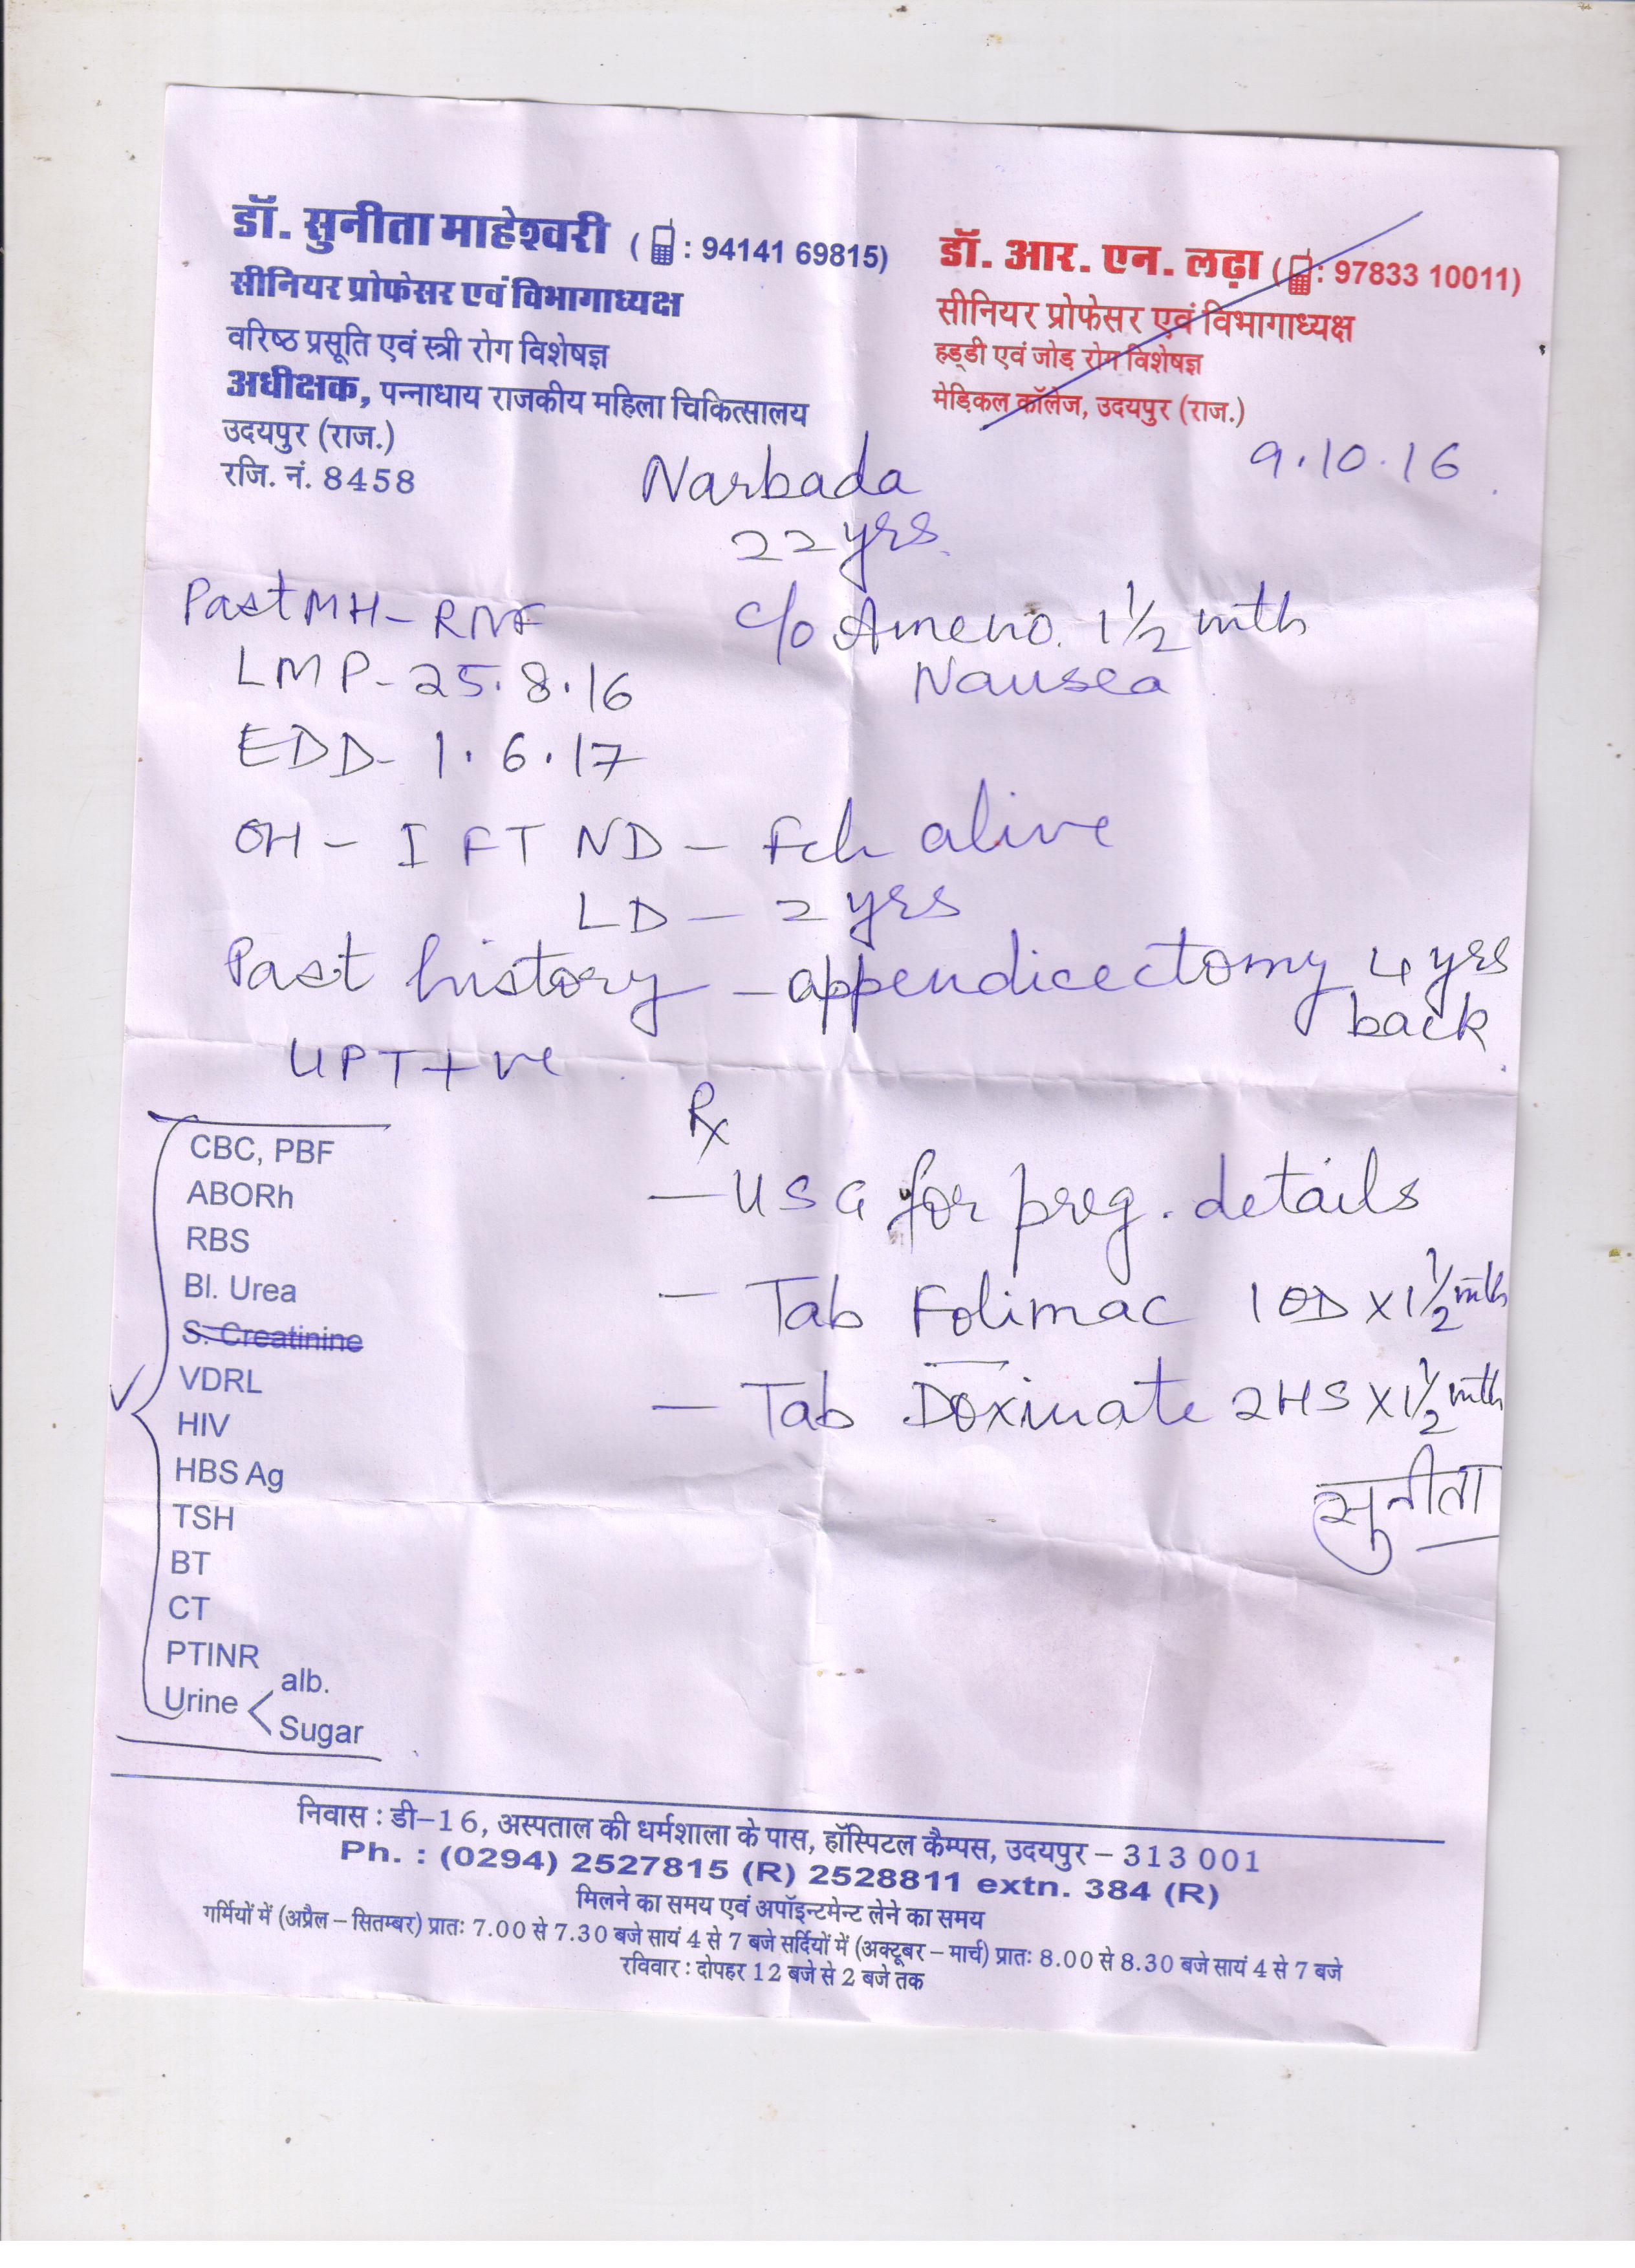 डॉ. सुनीता माहेश्वरी ( : 94141 69815)
सीनियर प्रोफेसर एवं विभागाध्यक्ष
वरिष्ठ प्रसूति एवं स्त्री रोग विशेषज्ञ
अधीक्षक, पन्नाधाय राजकीय महिला चिकित्सालय
उदयपुर (राज.)
रजि. नं. 8458
डॉ. आर. एन. लढ़ा ( : 97833 10011)
सीनियर प्रोफेसर एवं विभागाध्यक्ष
हड्डी एवं जोड़ रोग विशेषज्ञ
मेडिकल कॉलेज, उदयपुर (राज.)
9.10.16
Narbada
22 yrs.
c/o Ameno. 1 1/2 mth
Nausea
Past MH - RNF
LMP - 25.8.16
EDD - 1.6.17
OH - I FT ND - Fch alive
LD - 2 yrs
Past history - appendicectomy 4 yrs
back
UPT +ve
Rx
- USG for preg. details
- Tab Folimac 1 OD x 1 1/2 mth
- Tab Doxinate 2 HS x 1 1/2 mth
सुनीता
CBC, PBF
ABORh
RBS
Bl. Urea
S. Creatinine
VDRL
HIV
HBS Ag
TSH
BT
CT
PTINR
Urine < alb.
Sugar
निवास : डी-16, अस्पताल की धर्मशाला के पास, हॉस्पिटल कैम्पस, उदयपुर - 313 001
Ph. : (0294) 2527815 (R) 2528811 extn. 384 (R)
मिलने का समय एवं अपॉइन्टमेन्ट लेने का समय
गर्मियों में (अप्रैल - सितम्बर) प्रातः 7.00 से 7.30 बजे सायं 4 से 7 बजे सर्दियों में (अक्टूबर - मार्च) प्रातः 8.00 से 8.30 बजे सायं 4 से 7 बजे
रविवार : दोपहर 12 बजे से 2 बजे तक